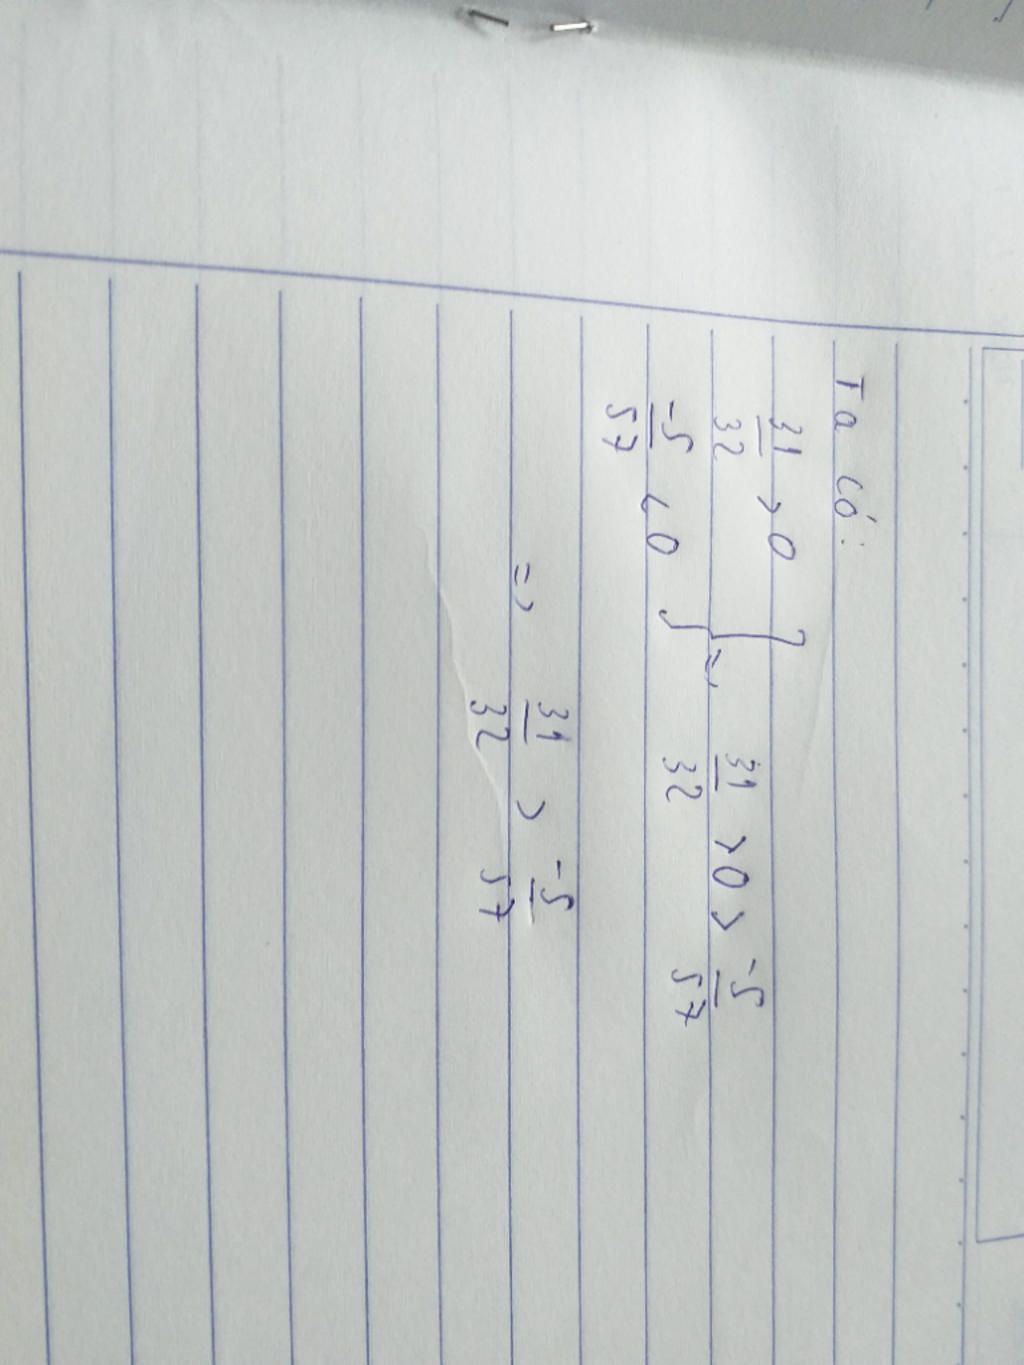 Ta có:
31/32 > 0
-5/57 < 0 } => 31/32 > 0 > -5/57
=> 31/32 > -5/57